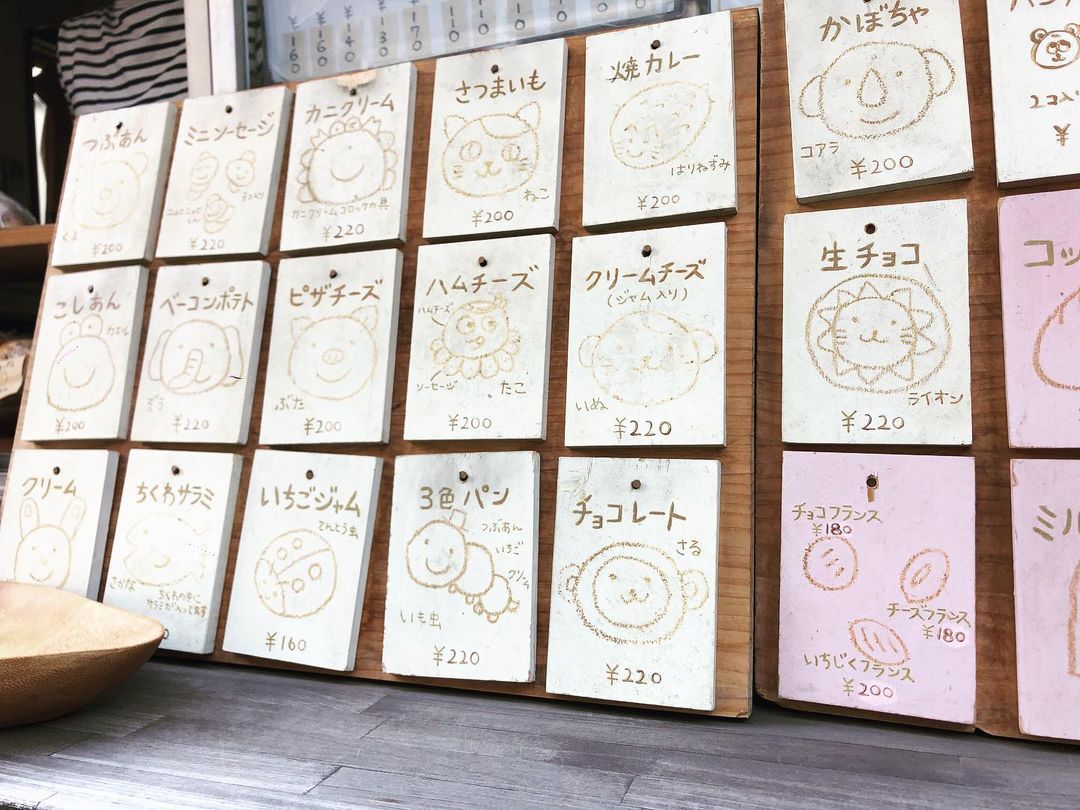 ¥160
¥160
¥140
¥130
¥170
¥110
¥100
つぶあん
くま
¥200
ミニソーセージ
¥220
カニクリーム
カニクリームコロッケの具
¥220
さつまいも
ねこ
¥200
焼カレー
はりねずみ
¥200
こしあん
カエル
¥200
ベーコンポテト
ぞう
¥220
ピザチーズ
ぶた
¥200
ハムチーズ
ハムチーズ
ソーセージ
たこ
¥200
クリームチーズ
(ジャム入り)
いぬ
¥220
クリーム
ちくわサラミ
さかな
ちくわの中に
サラミが入ってます
いちごジャム
てんとう虫
¥160
3色パン
つぶあん
いちご
クリーム
いも虫
¥220
チョコレート
さる
¥220
かぼちゃ
コアラ
¥200
2コ入
¥
生チョコ
ライオン
¥220
コッ
チョコフランス
¥180
チーズフランス
¥180
いちじくフランス
¥200
ミル